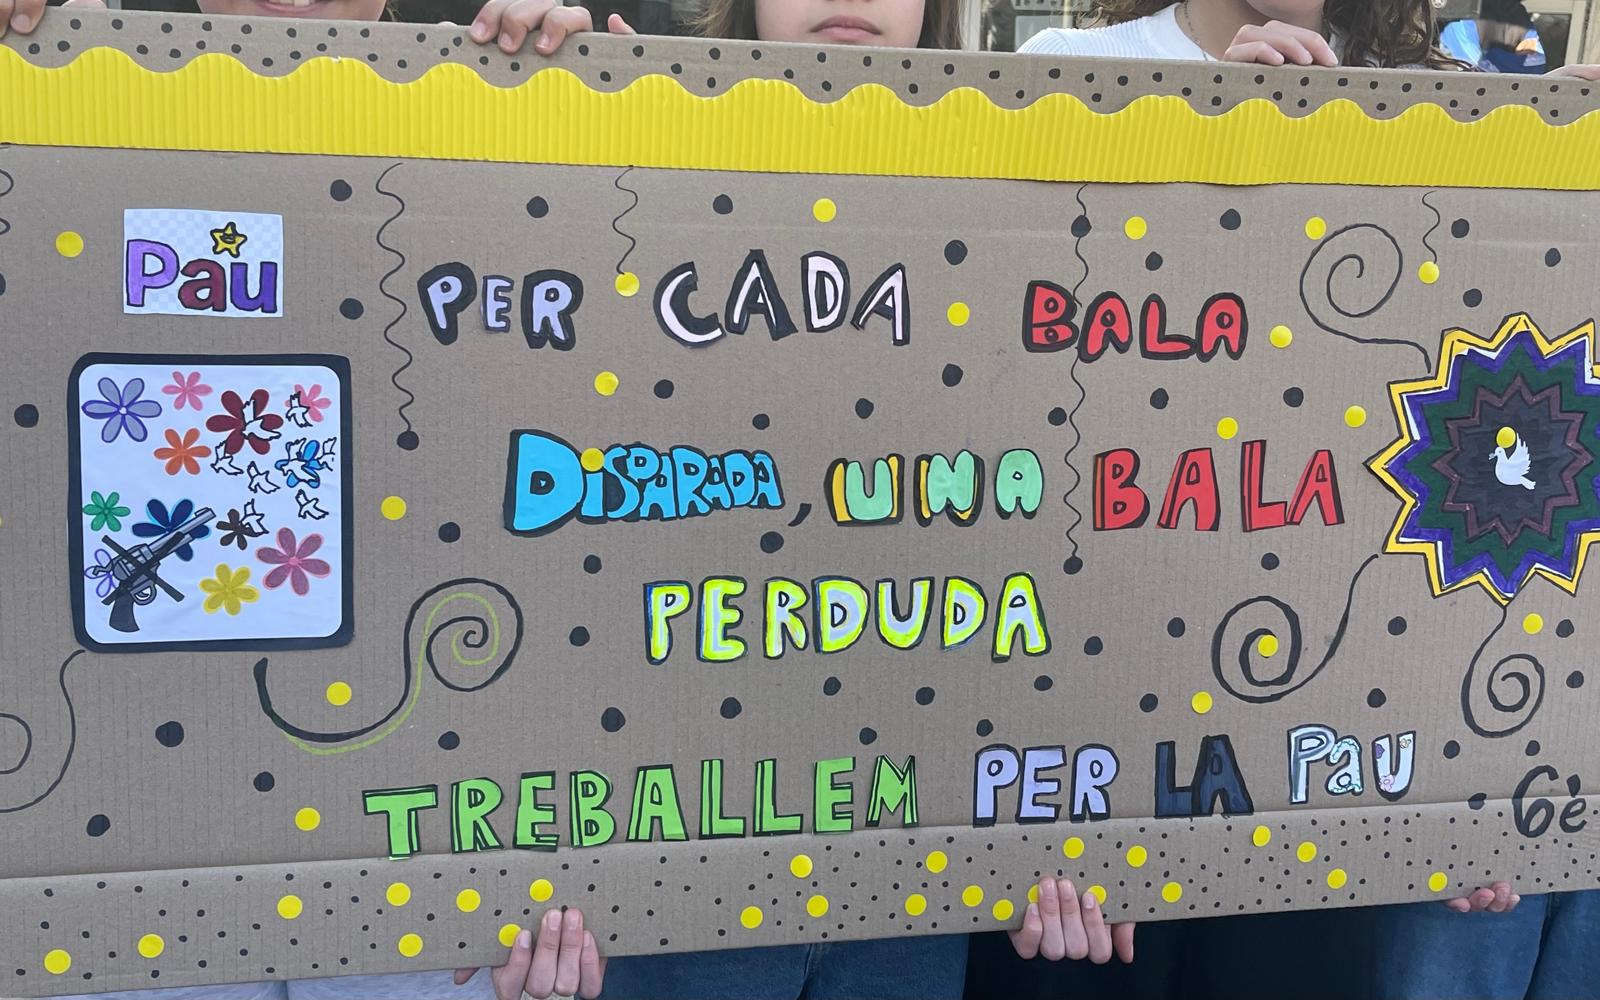 Pau
PER CADA BALA
DiSPARADA, UNA BALA
PERDUDA
TREBALLEM PER LA Pau
6è